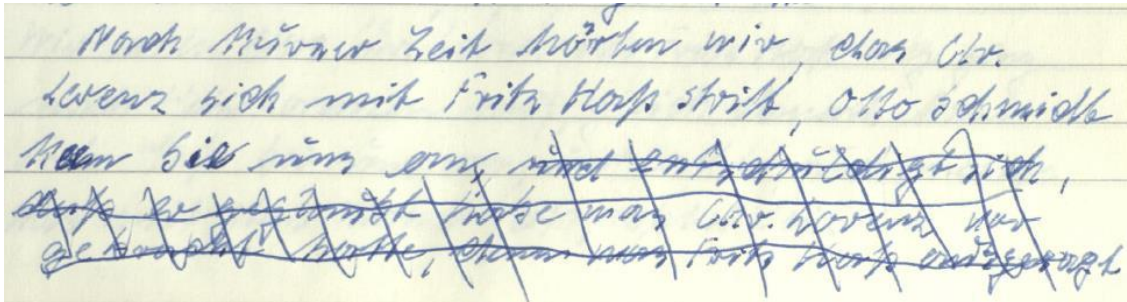 Nach kurzer Zeit hörten wir, das Chr.
Lorenz sich mit Fritz Haß stritt, Otto Schmidt
kam bei uns an, und entschuldigt sich,
daß er gegänzt habe was Chr. Lorenz vor
gebracht hatte, denn was Fritz Haß ausgesagt